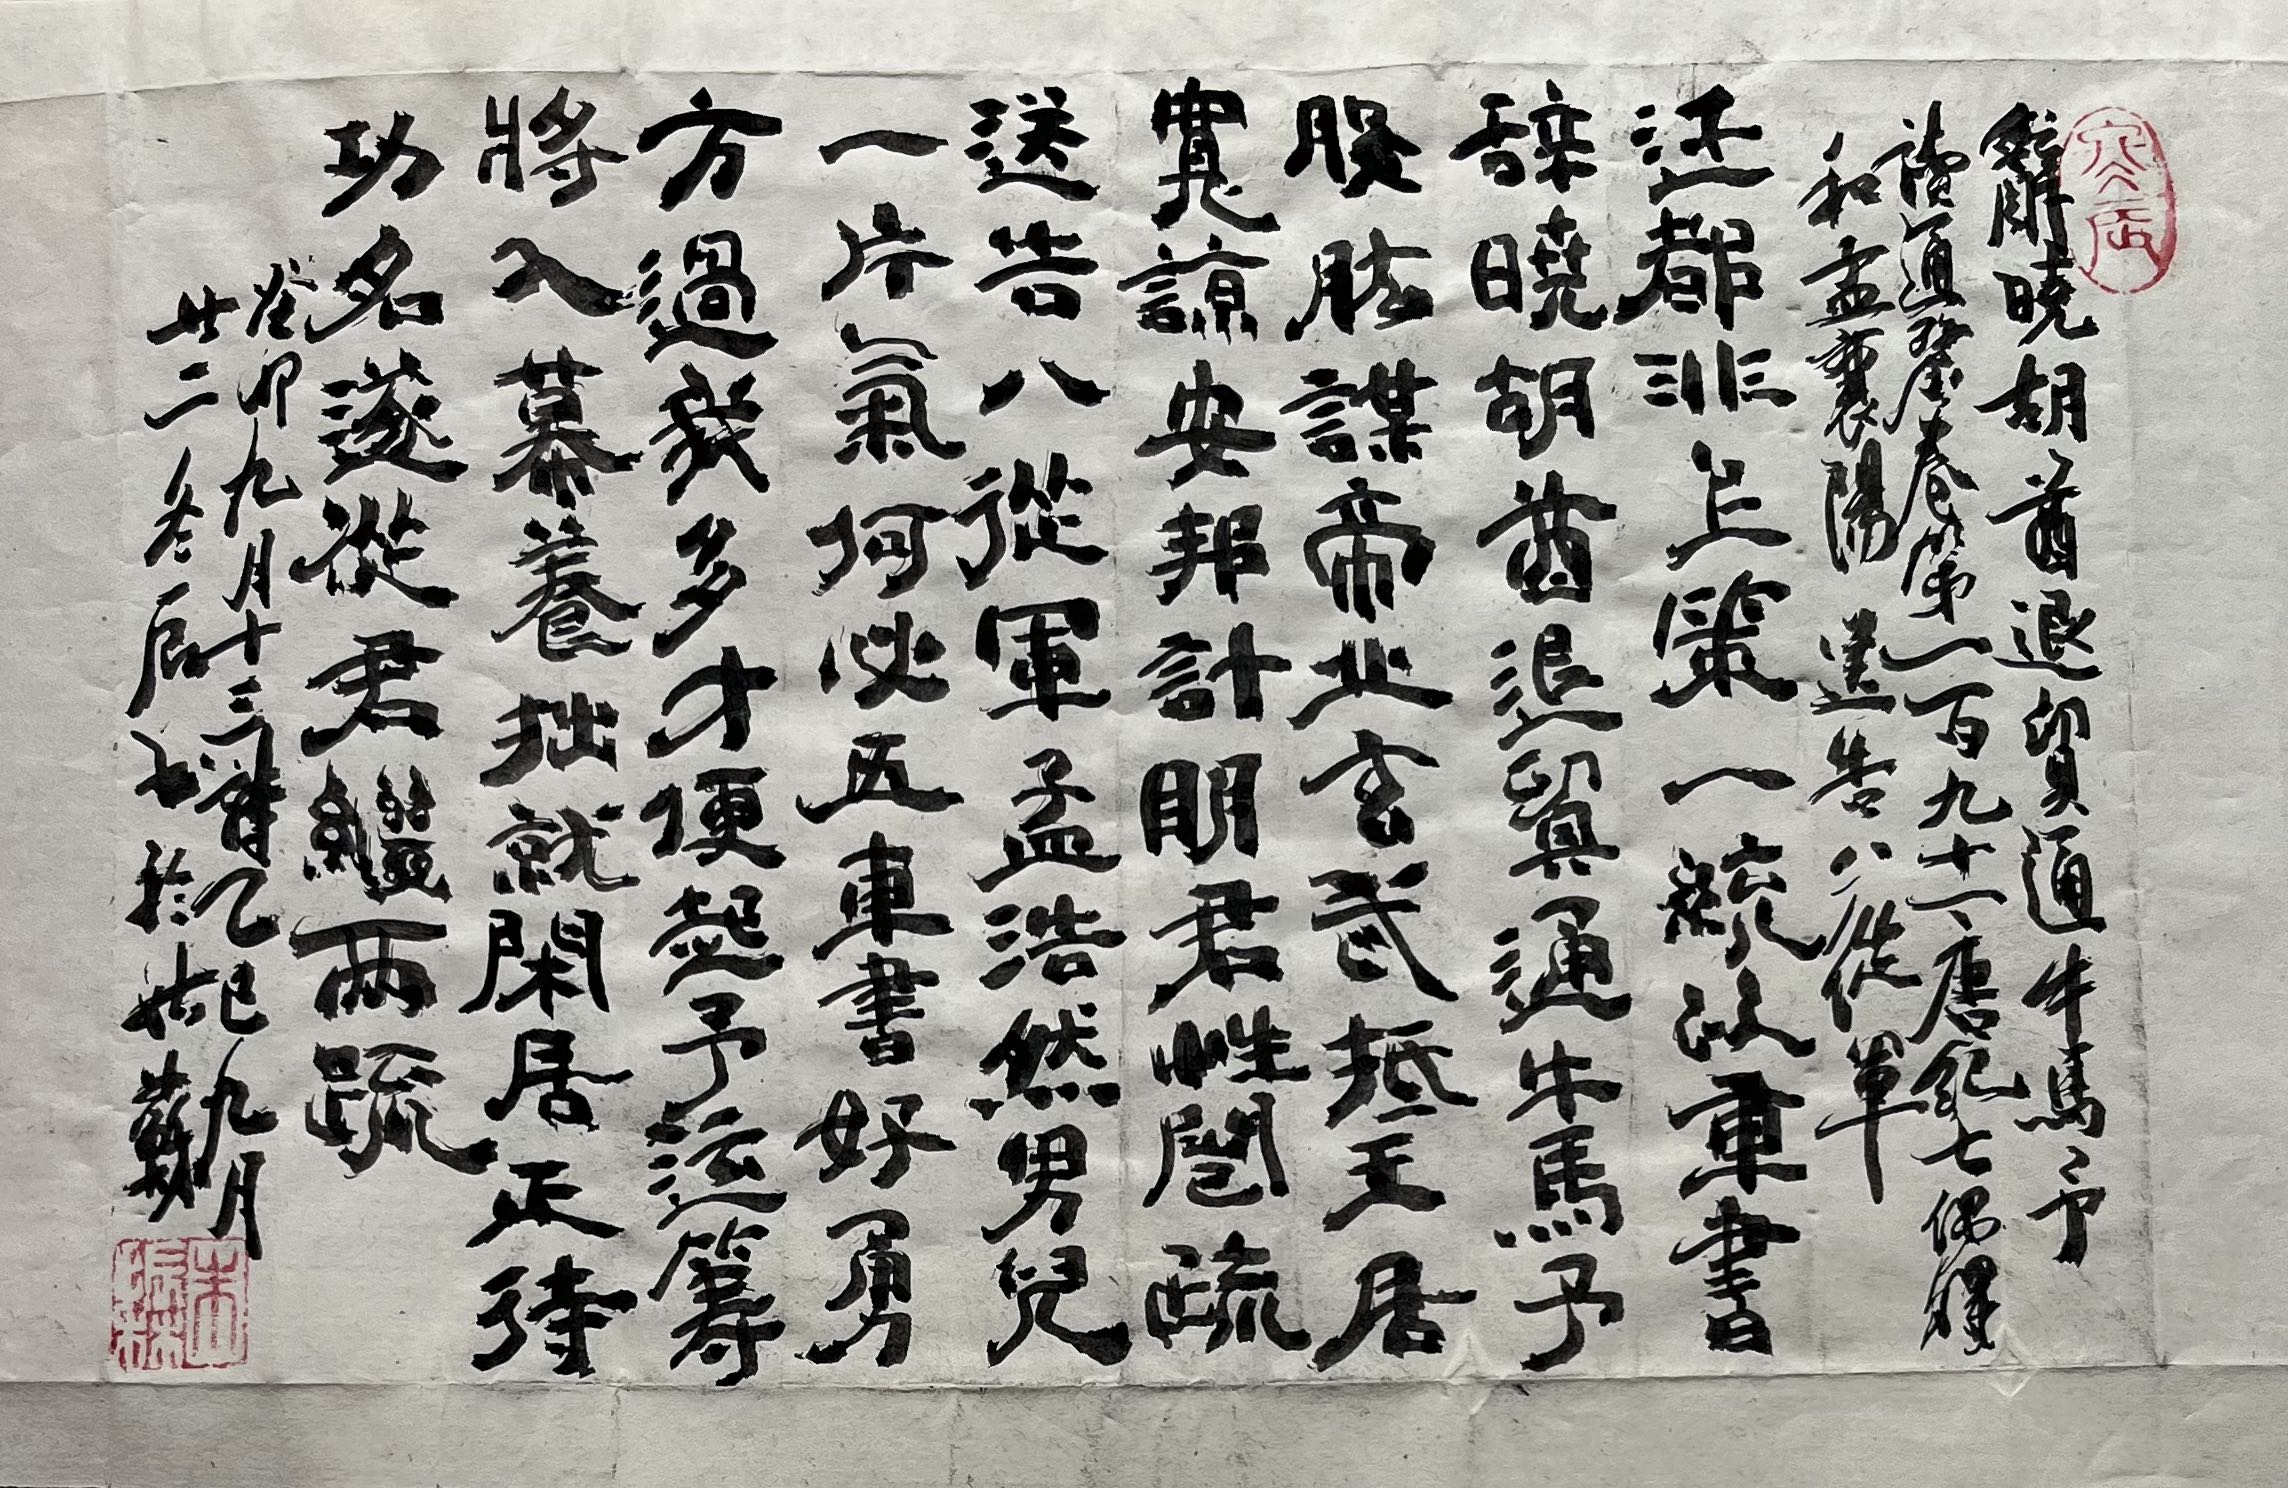 辭曉胡酋退貿通牛馬予
讀通鑒卷第一百九十一唐紀七偶得
和孟襄陽送告八從軍
迁都非上策一統以車書
辞曉胡酋退貿通牛馬予
股肱謀帝北玄武抵王居
寬諒安邦計明君性閭疏
送告八從軍孟浩然男兒
一片氣何必五車書好勇
方過我多才便起予运籌
將入幕養拙就閑居正待
功名遂從君繼兩疏
癸卯九月十三韻乙巳九月
廿二冬辰書於姑蘇